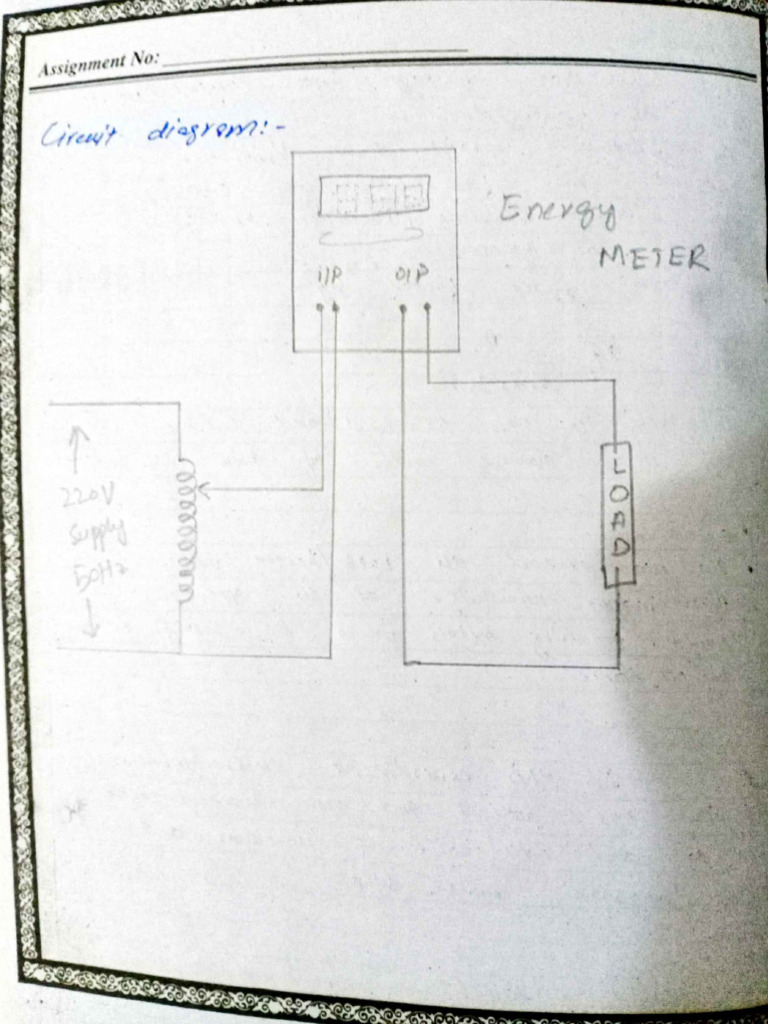 Assignment No:
Circuit diagram:-
Energy
METER
I/P O/P
220V
Supply
50Hz
LOAD